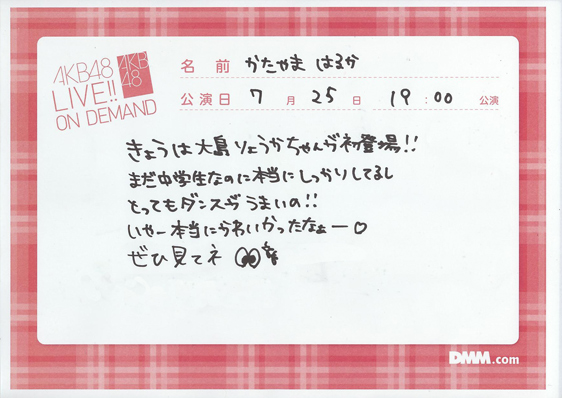 AKB48
LIVE!!
ON DEMAND
AKB
48
名前 かたやま はるか
公演日 7月25日 19:00 公演
きょうは大島りょうかちゃんが初登場!!
まだ中学生なのに本当にしっかりしてるし
とってもダンスがうまいの!!
いやー本当にかわいかったなぁー♡
ぜひ見てネ
DMM.com